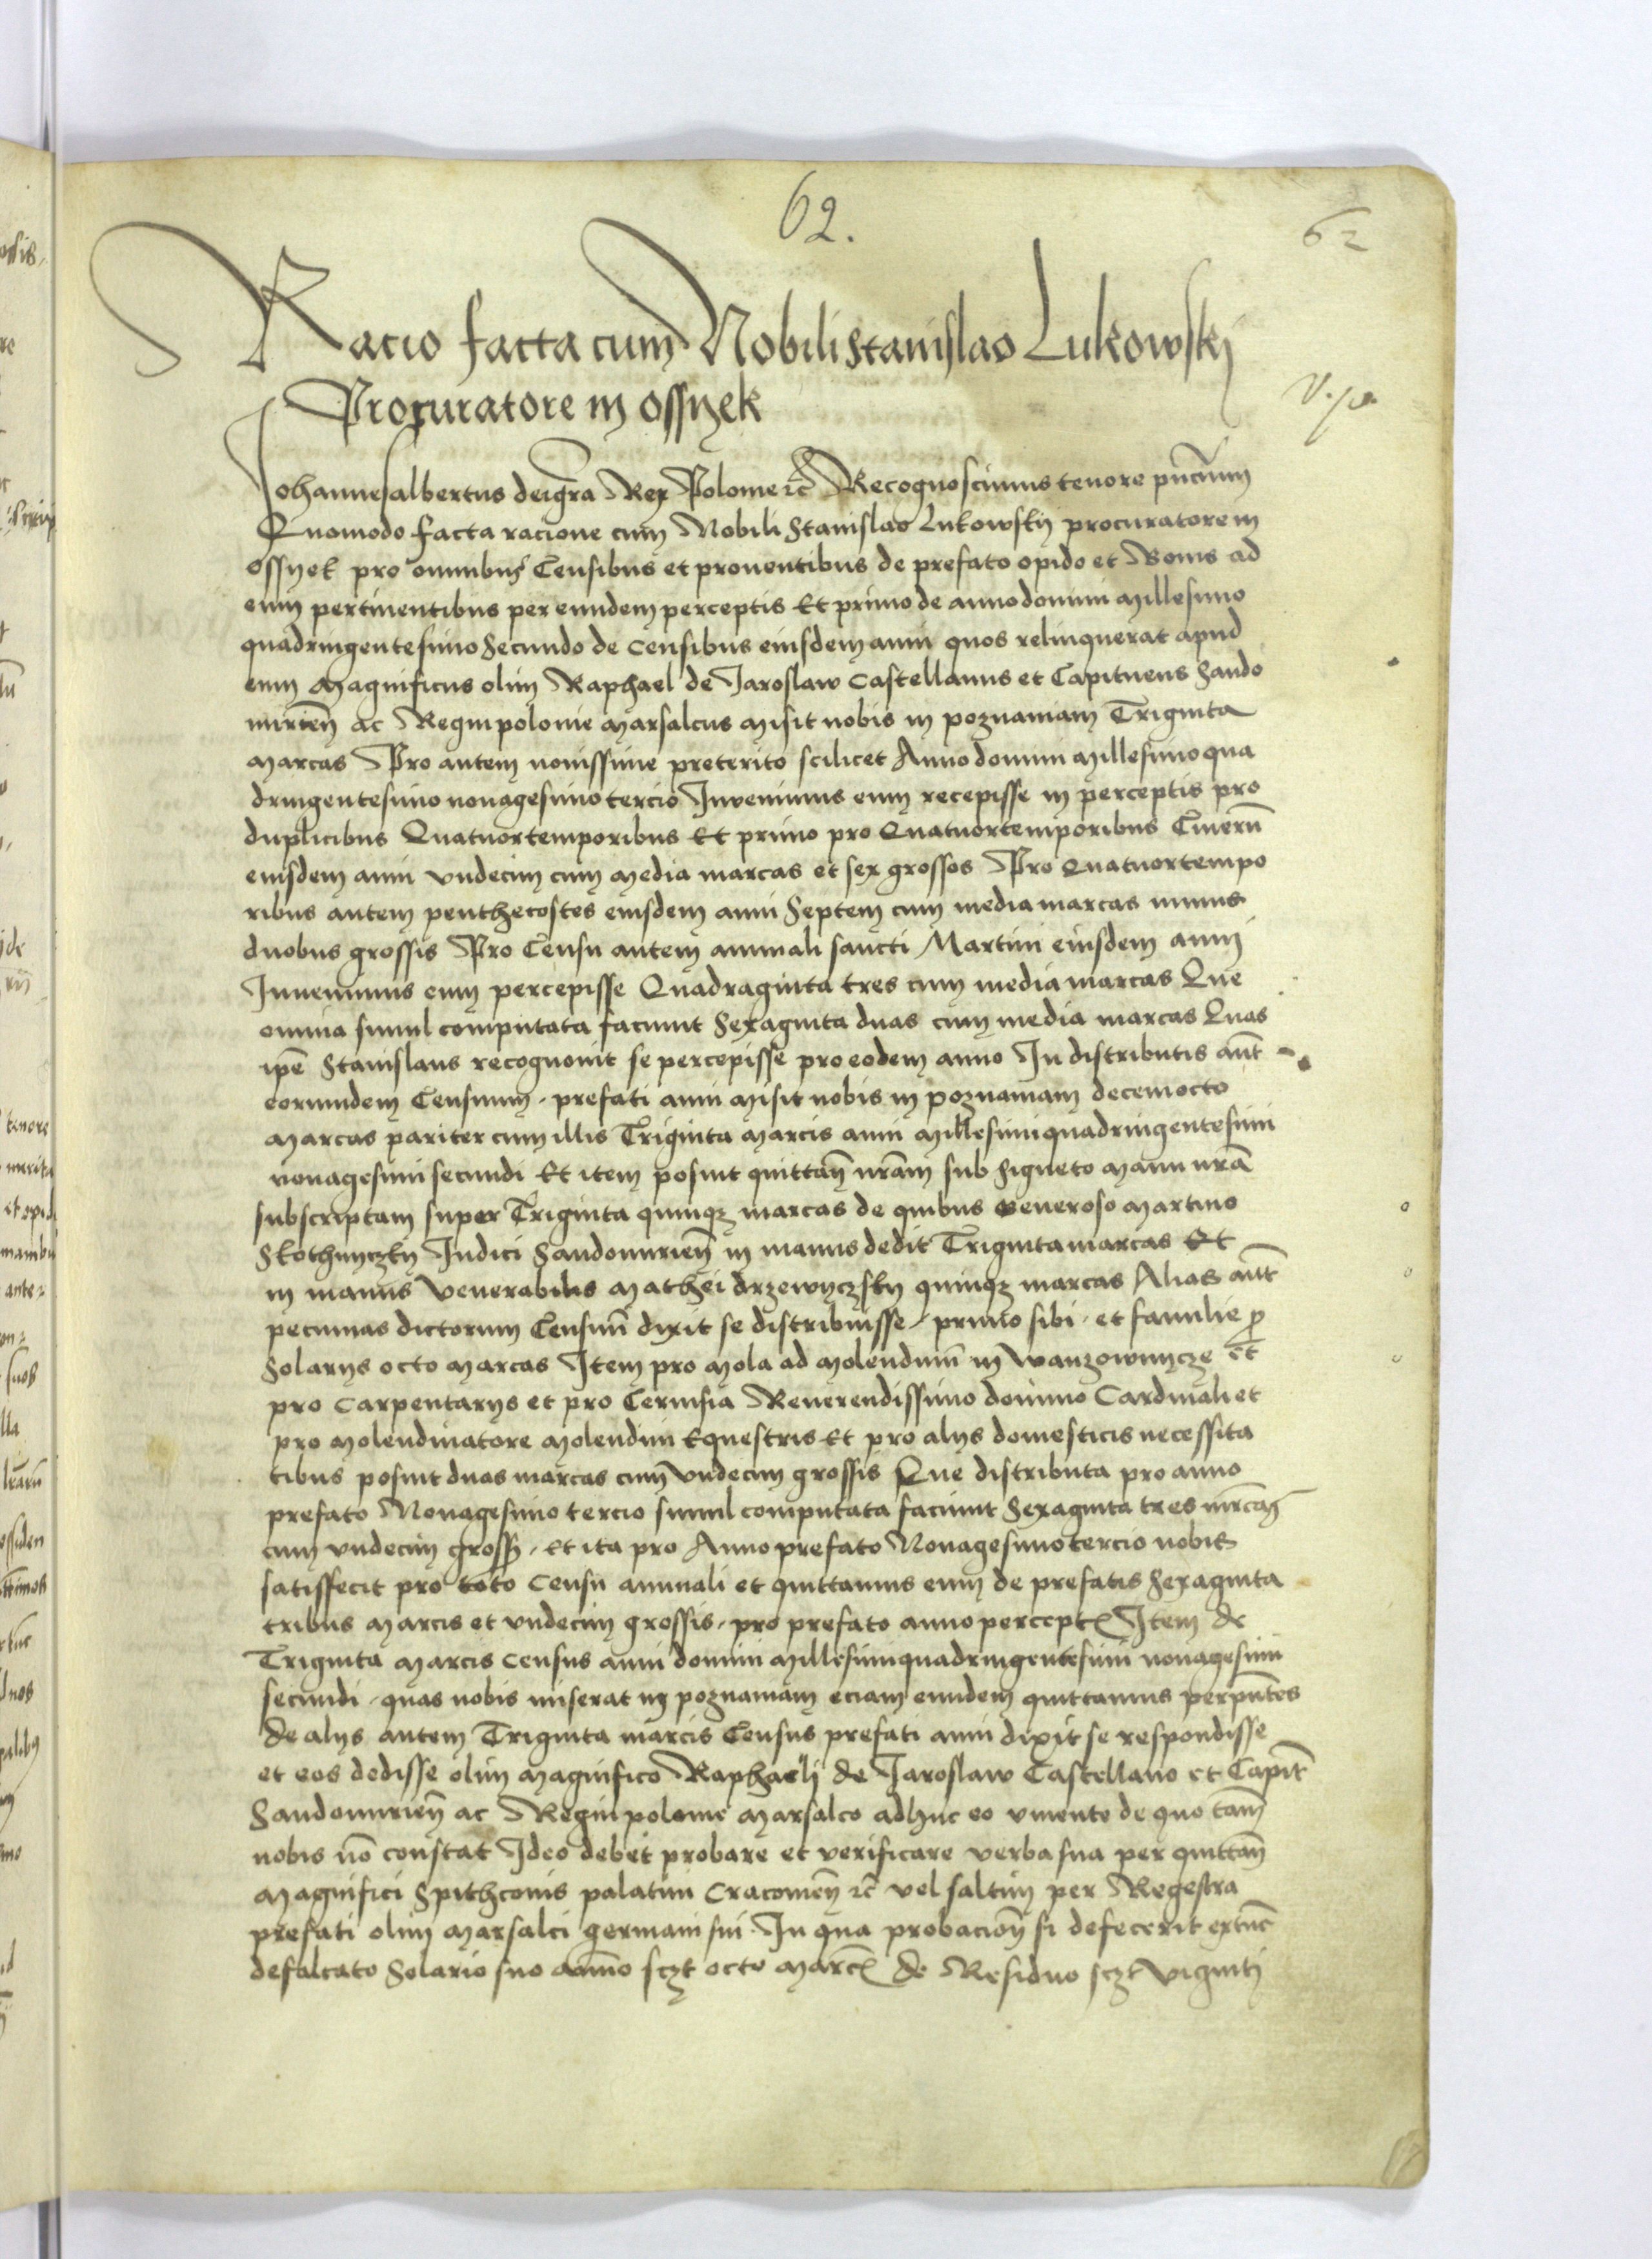 62.
62
Racio facta cum Nobili Stanislao Lukowskij
Procuratore in Ossyek
Johannes albertus dei gra Rex Polonie zc̄ Recognoscimus tenore pn̄cium
Quomodo facta racione cum Nobili Stanislao Lukowsky procuratore in
Ossyek pro omnibus Censibus et prouentibus de prefato opido et Bonis ad
eum pertinentibus per eundem perceptis Et primo de anno domini Millesimo
quadringentesimo Secundo de censibus eiusdem anni quos relinquerat apud
eum Magnificus olim Raphael de Jaroslaw Castellanus et Capitneus Sando
mirien̄ ac Regni polonie Marsalcus Misit nobis in poznaniam Triginta
Marcas Pro autem nouissime preterito scilicet Anno domini Millesimo qua
dringentesimo nonagesimo tercio Invenimus eum recepisse in perceptis pro
duplicibus Quatuortemporibus Et primo pro Quatuortemporibus Cinerū
eiusdem anni vndecim cum Media marcas et sex grossos Pro Quatuortempo
ribus autem penthecostes eiusdem anni Septem cum media marcas minus
duobus grossis Pro Censu autem annuali sancti Martini eiusdem anni
Inuenimus eum percepisse Quadraginta tres cum media marcas Que
omnia simul computata faciunt Sexaginta duas cum media marcas Quas
ipē Stanislaus recognouit se percepisse pro eodem anno In distributis aūt
eorumdem Censuum prefati anni Misit nobis in poznaniam decemocto
Marcas pariter cum illis Triginta Marcis anni Millesimiquadringentesimi
nonagesimi secundi Et item posuit quittan̄ nrām sub Signeto Manu nrā
subscriptam super Triginta quinqz marcas de quibus Generoso Martino
Skothnyczky Judici Sandomirien̄ in manus dedit Triginta marcas Et
in manus Venerabilis Mathei drzewyczsky quinqz marcas Alias aūt
pecunias dictorum Censuū dixit se distribuisse primo sibi et familie ꝓ
Solarys octo Marcas Item pro Mola ad Molendinū in Wanzownycze et
pro Carpentarys et pro Ceruisia Reuerendissimo domino Cardinali et
pro Molendinatore Molendini Equestris Et pro alys domesticis necessita
tibus posuit duas marcas cum vndecim grossis Que distributa pro anno
prefato Nonagesimo tercio simul computata faciunt Sexaginta tres mrcas
cum vndecim gross Et ita pro Anno prefato Nonagesimo tercio nobis
satisfecit pro toto Censu annuali et quittamus eum de prefatis Sexaginta
tribus Marcis et vndecim grossis pro prefato anno percept Item de
Triginta Marcis Census anni domini Millesimiquadringentesimi nonagesimi
secundi quas nobis miserat in poznaniam eciam eundem quittamus per pn̄tes
de alys autem Triginta marcis Census prefati anni dixit se respondisse
et eos dedisse olim Magnifico Raphaeli de Jaroslaw Castellano et Capit
Sandomirien̄ ac Regni polonie Marsalco adhuc eo viuente de quo tam̄
nobis nō constat Ideo debet probare et verificare verba sua per quittan̄
Magnifici Spithconis palatini Cracouien̄ zc̄ vel saltim per Regestra
prefati olim Marsalci germani sui In qua probacion̄ si defecerit extūc
defalcato Solario suo annuo sczt octo Marc de Residuo sczt viginti